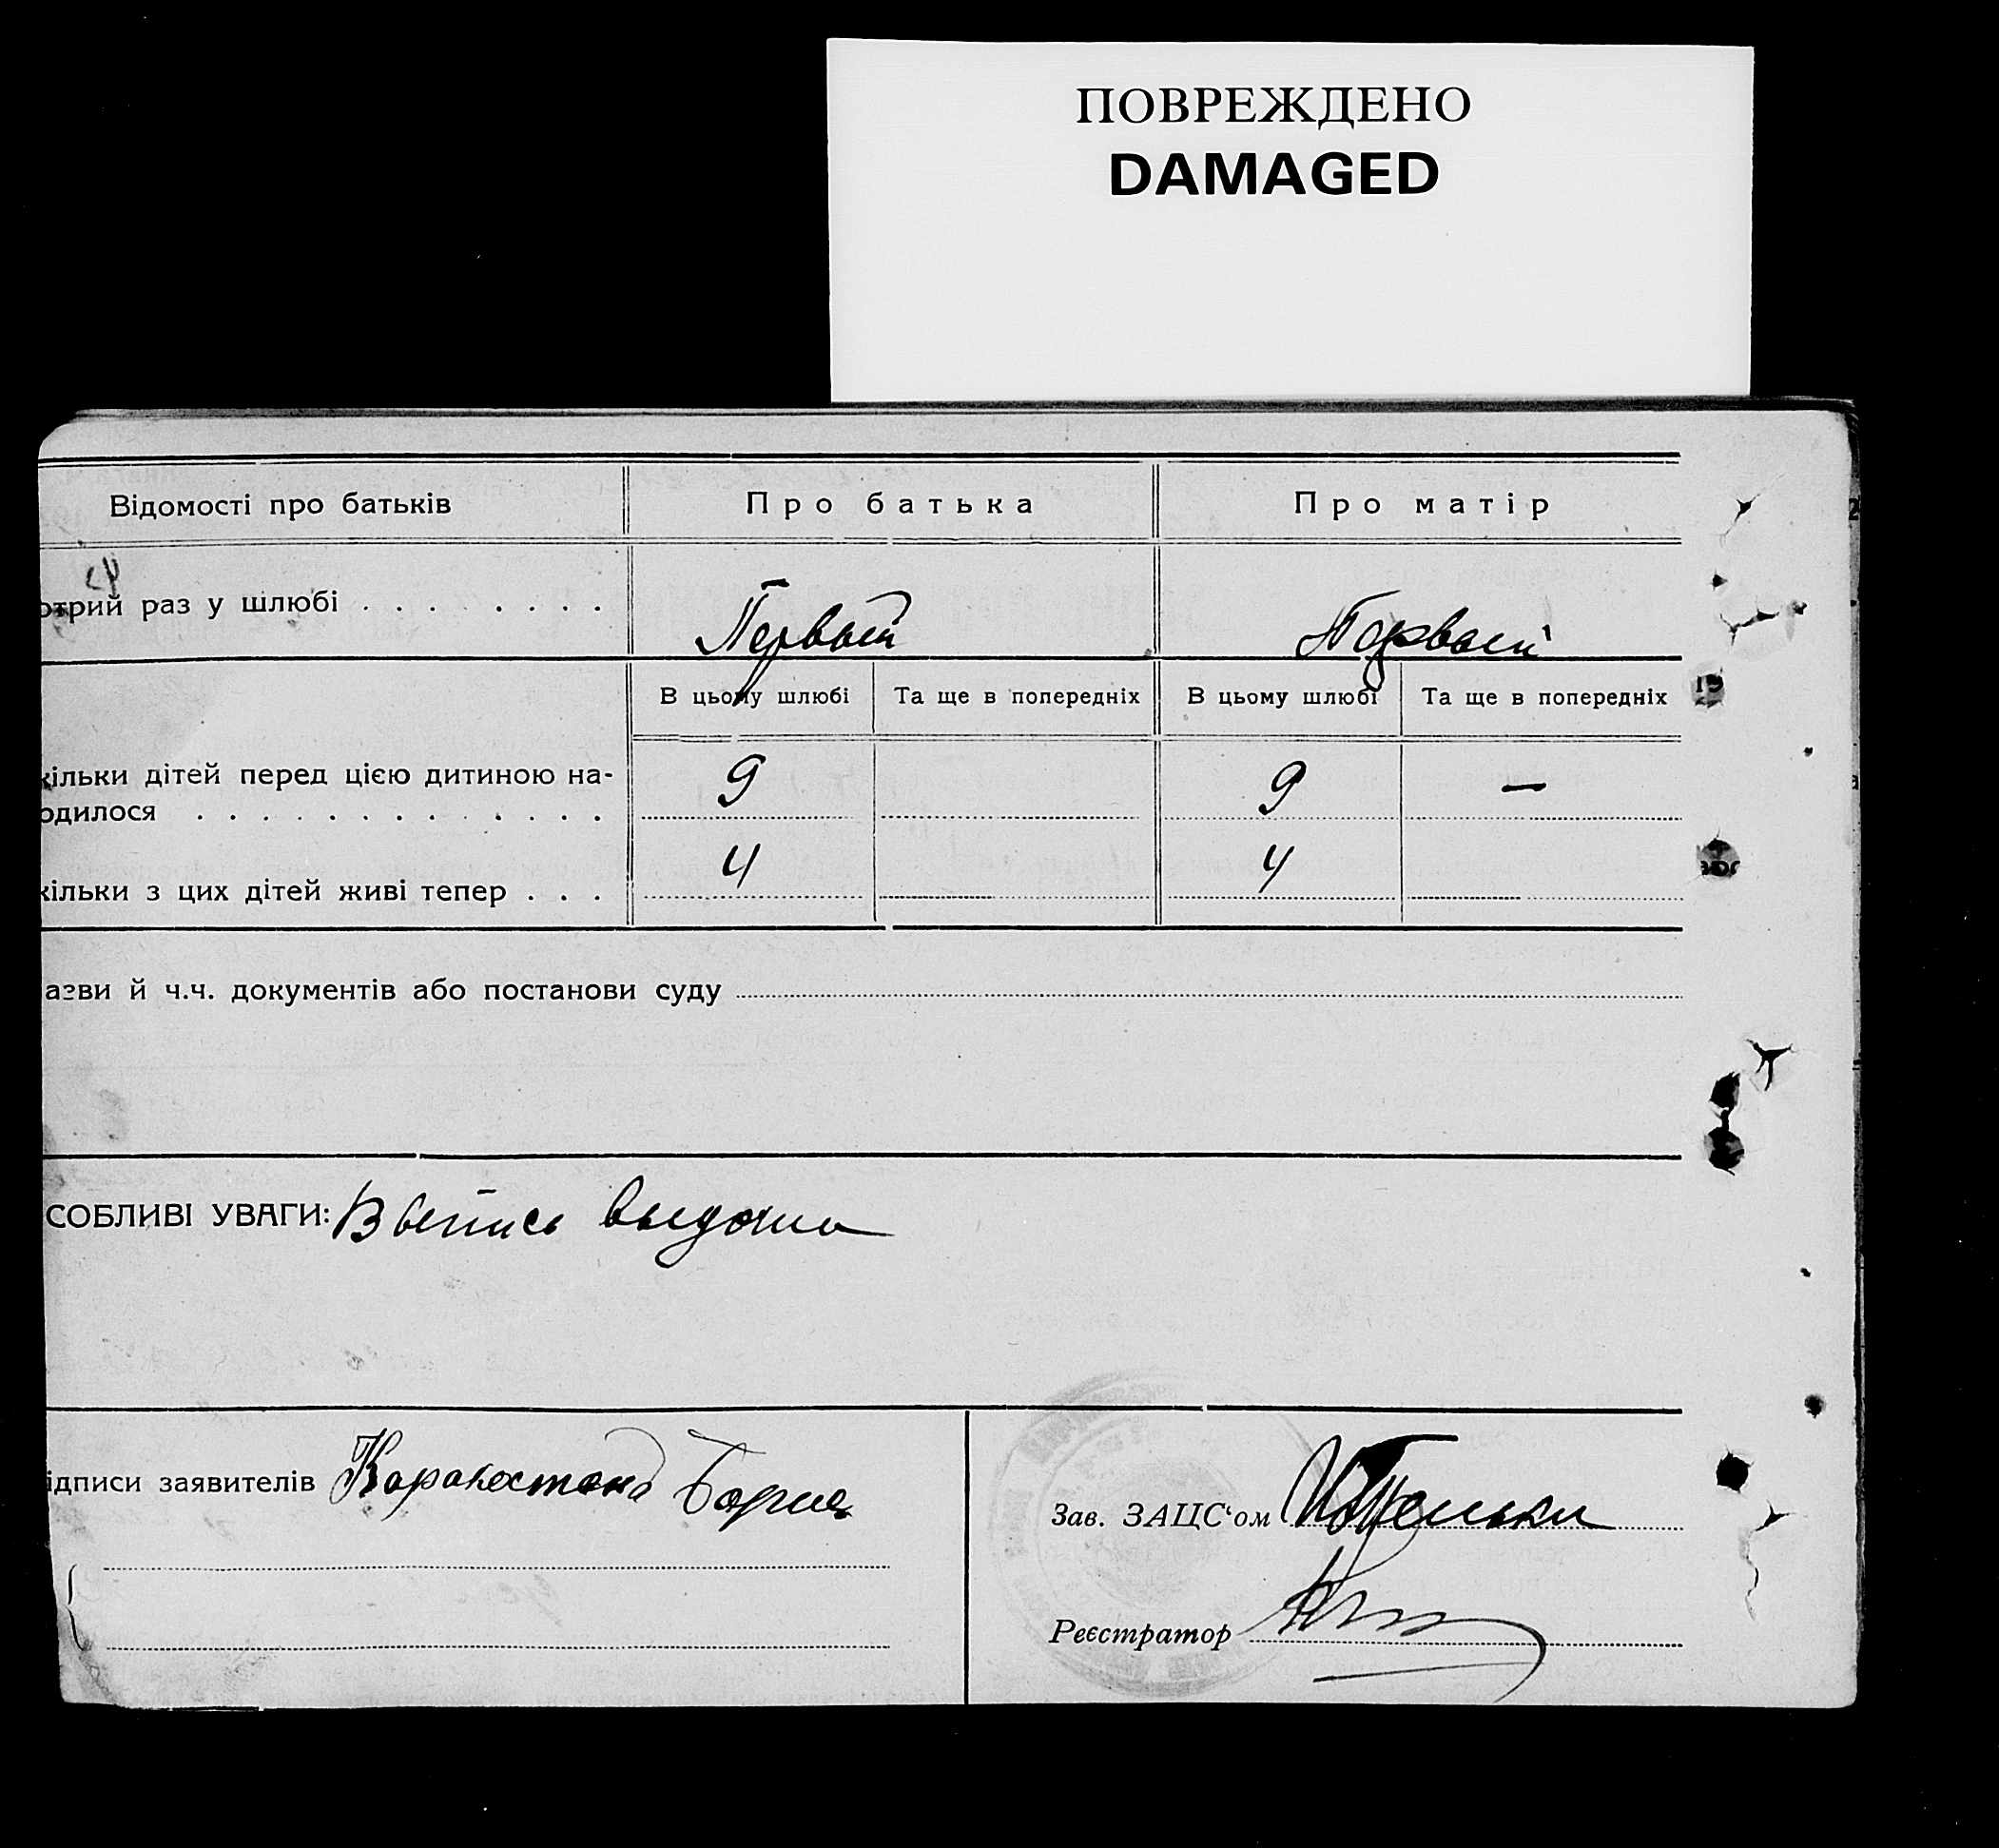 ПОВРЕЖДЕНО
DAMAGED
Відомості про батьків
Про батька
Про матір
отрий раз у шлюбі
Первый
Первый
В цьому шлюбі
Та ще в попередніх
В цьому шлюбі
Та ще в попередніх
кільки дітей перед цією дитиною на-
одилося
9
9
—
кільки з цих дітей живі тепер
4
4
азви й ч.ч. документів або постанови суду
СОБЛИВІ УВАГИ: Выпись выдана
ідписи заявителів
Зав. ЗАЦС'ом
Реєстратор